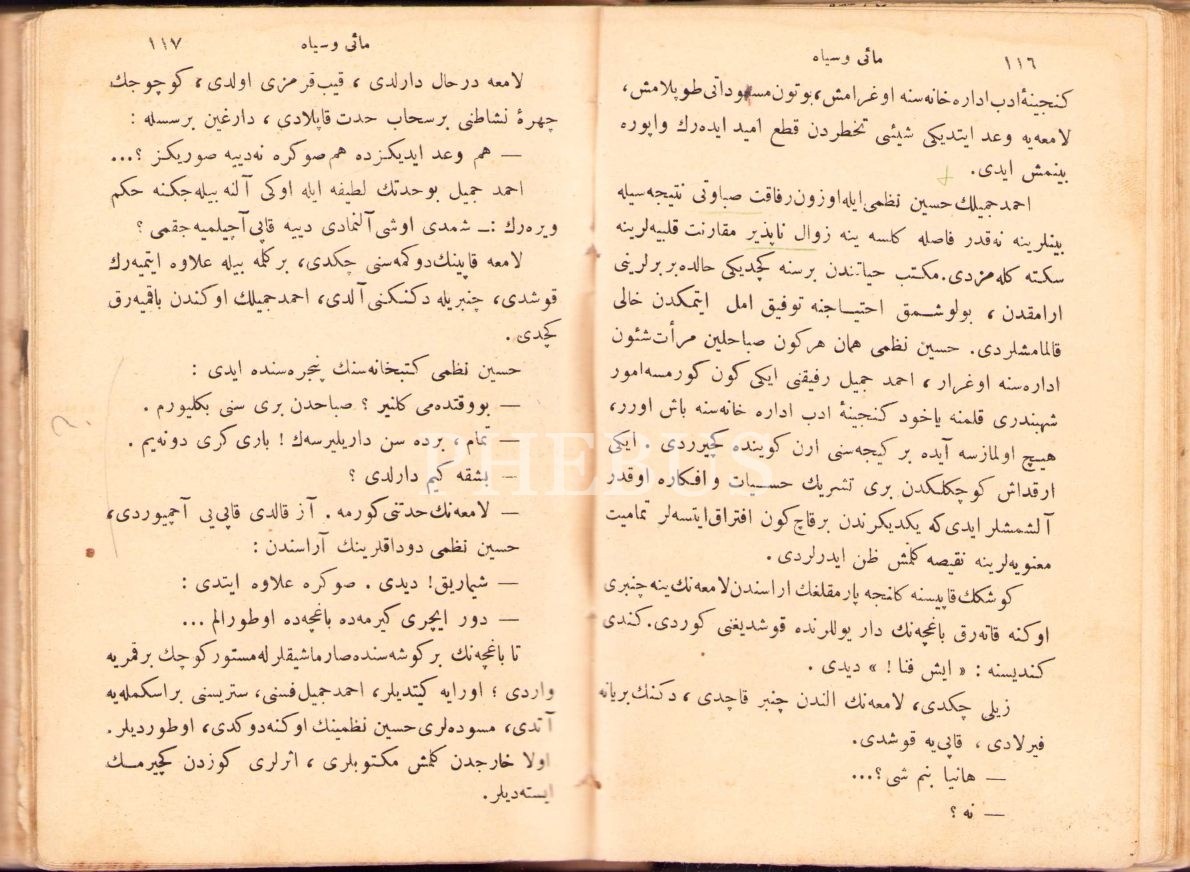 ١١٦
مائی و سیاه
كنجینهٔ ادب اداره خانه سنه اوغرامش، بوتون مسوداتی طوپلامش،
لامعه یه وعد ایتدیكی شیئی تخطردن قطع امید ایده رك واپوره
بینمش ایدی.
احمد جمیلك حسین نظمی ایله اوزون رفاقت صباوتی نتیجه سیله
بینلرینه نه قدر فاصله كلسه ینه زوال ناپذیر مقارنت قلبیه لرینه
سكته كله مزدی. مكتب حیاتندن بر سنه كچدیكی حالده بر برلرینی
ارامقدن ، بولوشمق احتیاجنه توفیق امل ایتمكدن خالی
قالمامشلردی. حسین نظمی همان هر كون صباحلین مرأت شئون
اداره سنه اوغرار ، احمد جمیل رفیقنی ایكی كون كورمسه امور
شهبندری قلمنه یاخود كنجینهٔ ادب اداره خانه سنه باش اورر،
هیچ اولمازسه آیده بر كیجه سنی ارن كوینده كچیرردی . ایكی
ارقداش كوچكلكدن بری تشریك حسیات و افكاره اوقدر
آلشمشلر ایدی كه یكدیكرندن بر قاچ كون افتراق ایتسه لر تمامیت
معنویه لرینه نقیصه كلمش ظن ایدرلردی .
كوشكك قاپیسنه كلنجه پارمقلغك اراسندن لامعه نك ینه چنبری
اوكنه قاته رق باغچه نك دار یوللرنده قوشدیغنی كوردی. كندی
كندیسنه : « ایش فنا ! » دیدی .
زیلی چكدی، لامعه نك الندن چنبر قاچدی ، دكنك بر یانه
فیرلادی ، قاپی یه قوشدی.
— هانیا بنم شی ؟...
— نه ؟
مائی و سیاه
١١٧
لامعه درحال دارلدی ، قیب قرمزی اولدی ، كوچوجك
چهرهٔ نشاطنی بر سحاب حدت قاپلادی ، دارغین بر سسله :
— هم وعد ایدیكز ده هم صوكره نه دییه صوریكز ؟...
احمد جمیل بو حدتك لطیفه ایله اوكی آلنه بیله جكنه حكم
ویره رك : — شمدی اوشی آلنمادی دییه قاپی آچیلمیه جقمی ؟
لامعه قاپینك دوكمه سنی چكدی، بر كلمه بیله علاوه ایتمیه رك
قوشدی، چنبریله دكنكنی آلدی، احمد جمیلك اوكندن باقمیه رق
كچدی .
حسین نظمی كتبخانه سنك پنجره سنده ایدی :
— بو وقتده می كلنیر ؟ صباحدن بری سنی بكلیورم .
— تمام ، بر ده سن داریلیرسه ك ! باری كری دونه یم .
— بشقه كیم دارلدی ؟
— لامعه نك حدتنی كورمه . آز قالدی قاپی یی آچمیوردی،
حسین نظمی دوداقلرینك آراسندن :
— شیماریق! دیدی . صوكره علاوه ایتدی :
— دور ایچری كیرمه ده باغچه ده اوطورالم ...
تا باغچه نك بر كوشه سنده صارماشیقلرله مستور كوچك بر قمریه
واردی ؛ اورایه كیتدیلر، احمد جمیل فسنی، ستریسنی بر اسكمله یه
آتدی، مسوده لری حسین نظمینك اوكنه دوكدی، اوطوردیلر .
اولا خارجدن كلمش مكتوبلری ، اثرلری كوزدن كچیرمك
ایسته دیلر .
PHEBUS